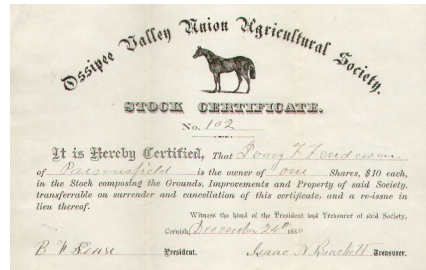 Ossipee Valley Union Agricultural Society.
STOCK CERTIFICATE.
No. 102
It is Hereby Certified, That
of Parsonsfield is the owner of one Shares, $10 each,
in the Stock composing the Grounds, Improvements and Property of said Society,
transferrable on surrender and cancellation of this certificate, and a re-issue in
lieu thereof.
Witness the hand of the President and Treasurer of said Society,
Cornish, December 24th 188
President. Isaac Brackett Treasurer.